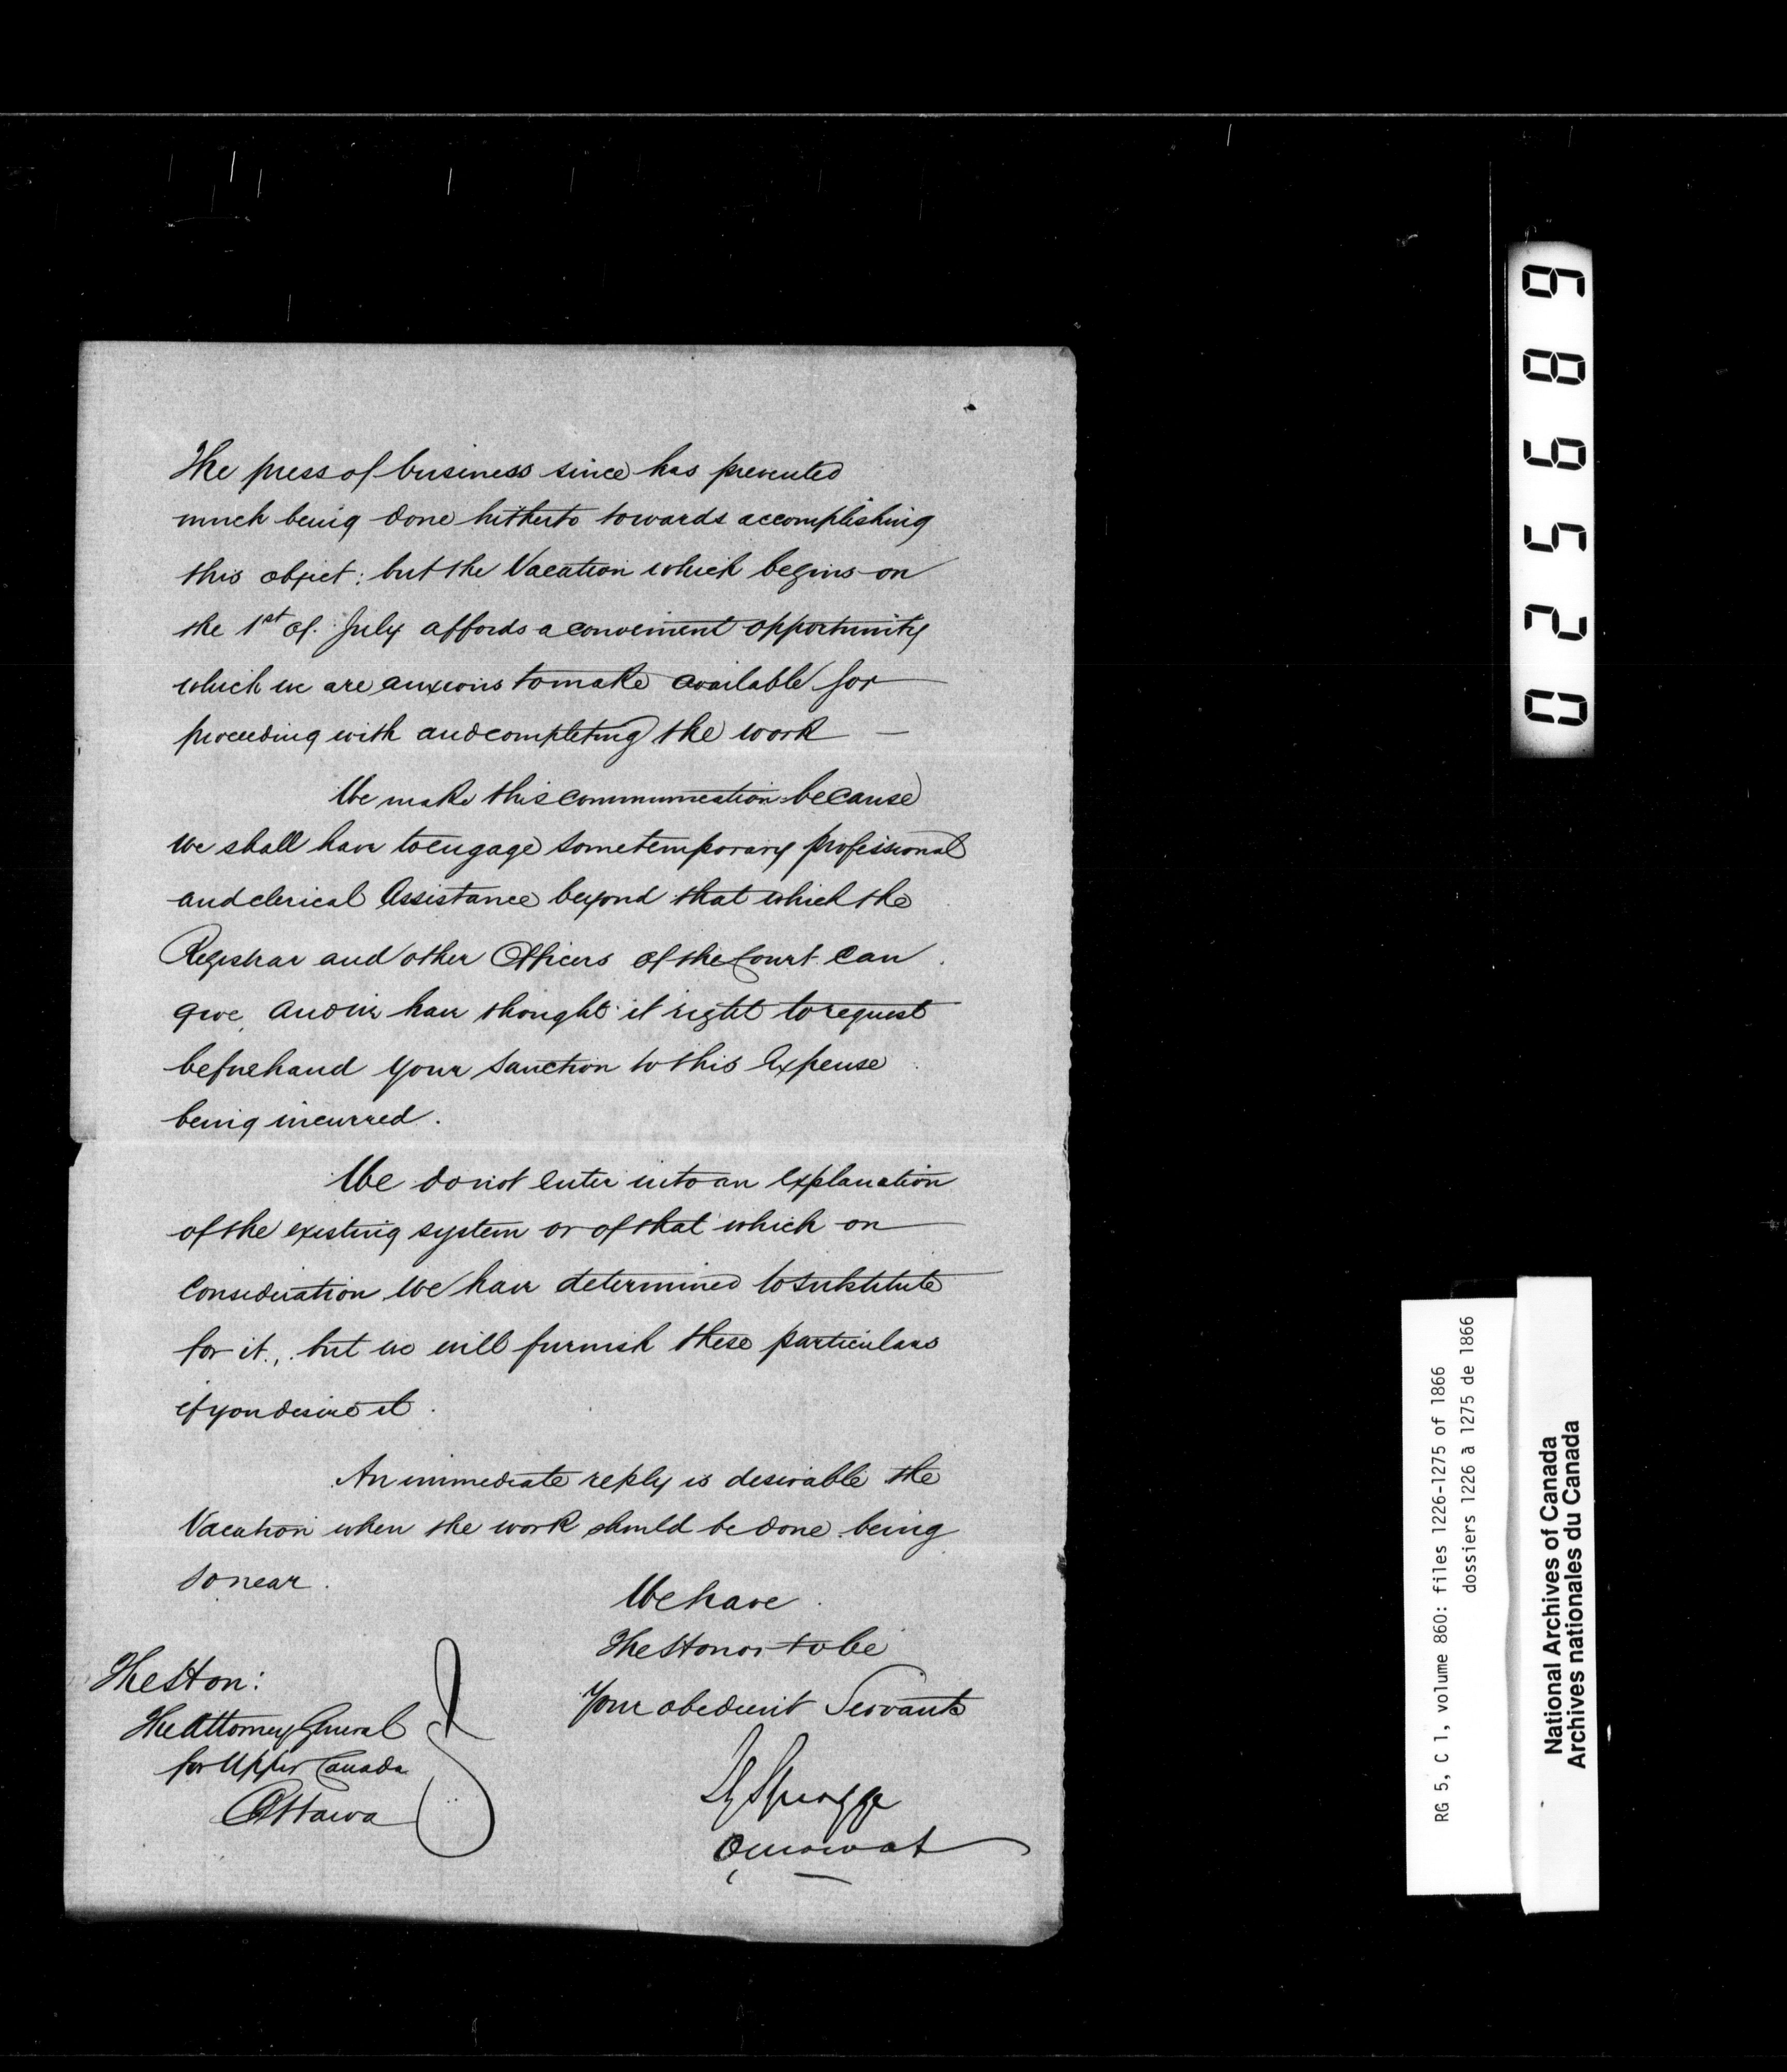 The press of business since has prevented
much being done hitherto towards accomplishing
this object: but the Vacation which begins on
the 1st of July affords a convenient opportunity
which we are anxious to make available for
proceeding with and completing the work —
We make this communication because
we shall have to engage some temporary professional
and clerical Assistance beyond that which the
Registrar and other Officers of the Court can
give and we have thought it right to request
beforehand your sanction to this Expense
being incurred.
We do not enter into an explanation
of the existing system or of that which on
consideration we have determined to substitute
for it, but we will furnish these particulars
if you desire it.
An immediate reply is desirable the
Vacation when the work should be done being
so near.
We have
The Honor to be
Your obedient Servants
Spragge
O Mowat
The Hon:
The Attorney General
for Upper Canada
Ottawa
025689
RG 5, C 1, volume 860: files 1226-1275 of 1866
dossiers 1226 à 1275 de 1866
National Archives of Canada
Archives nationales du Canada